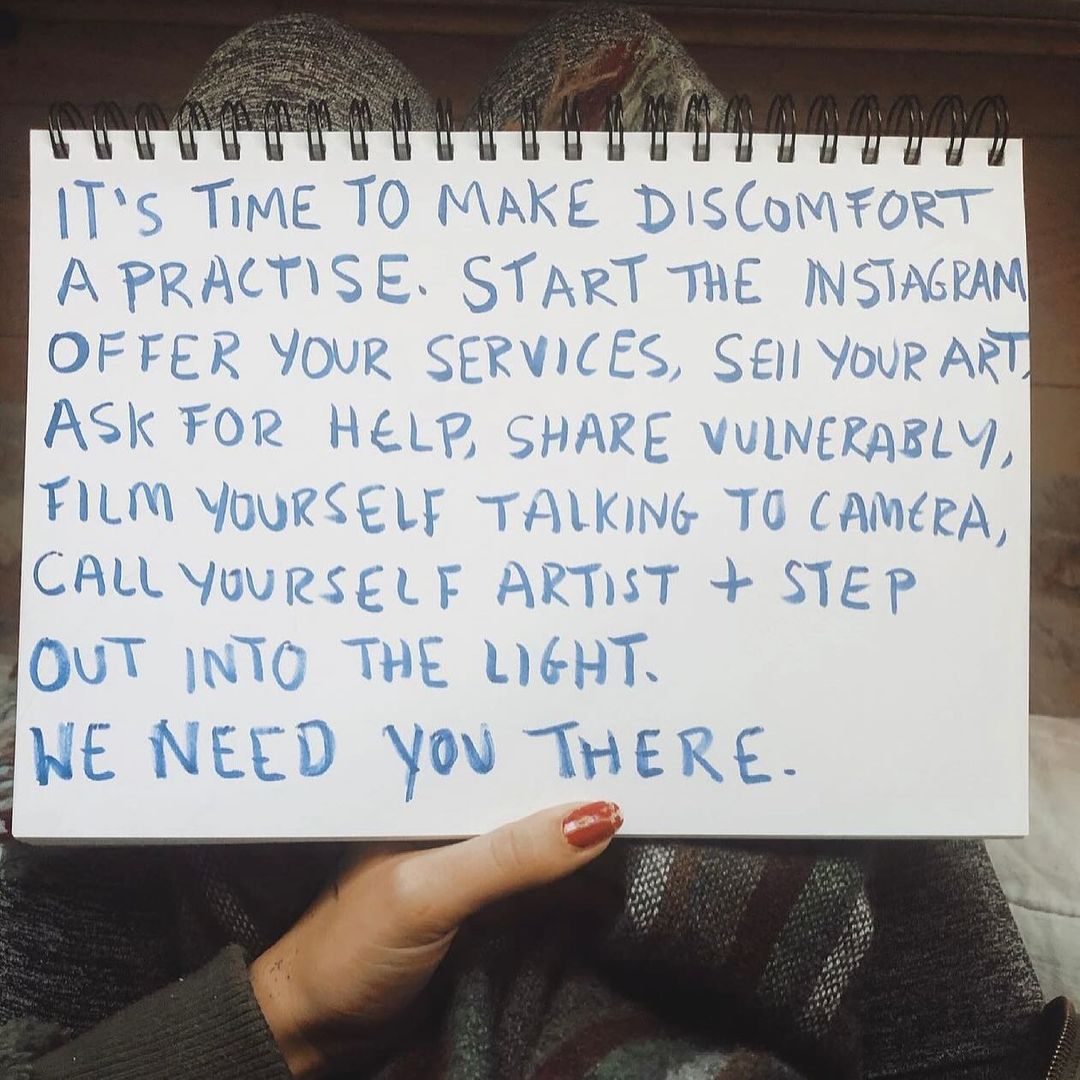 IT'S TIME TO MAKE DISCOMFORT
A PRACTISE. START THE INSTAGRAM
OFFER YOUR SERVICES, SELL YOUR ART,
ASK FOR HELP, SHARE VULNERABLY,
FILM YOURSELF TALKING TO CAMERA,
CALL YOURSELF ARTIST + STEP
OUT INTO THE LIGHT.
WE NEED YOU THERE.